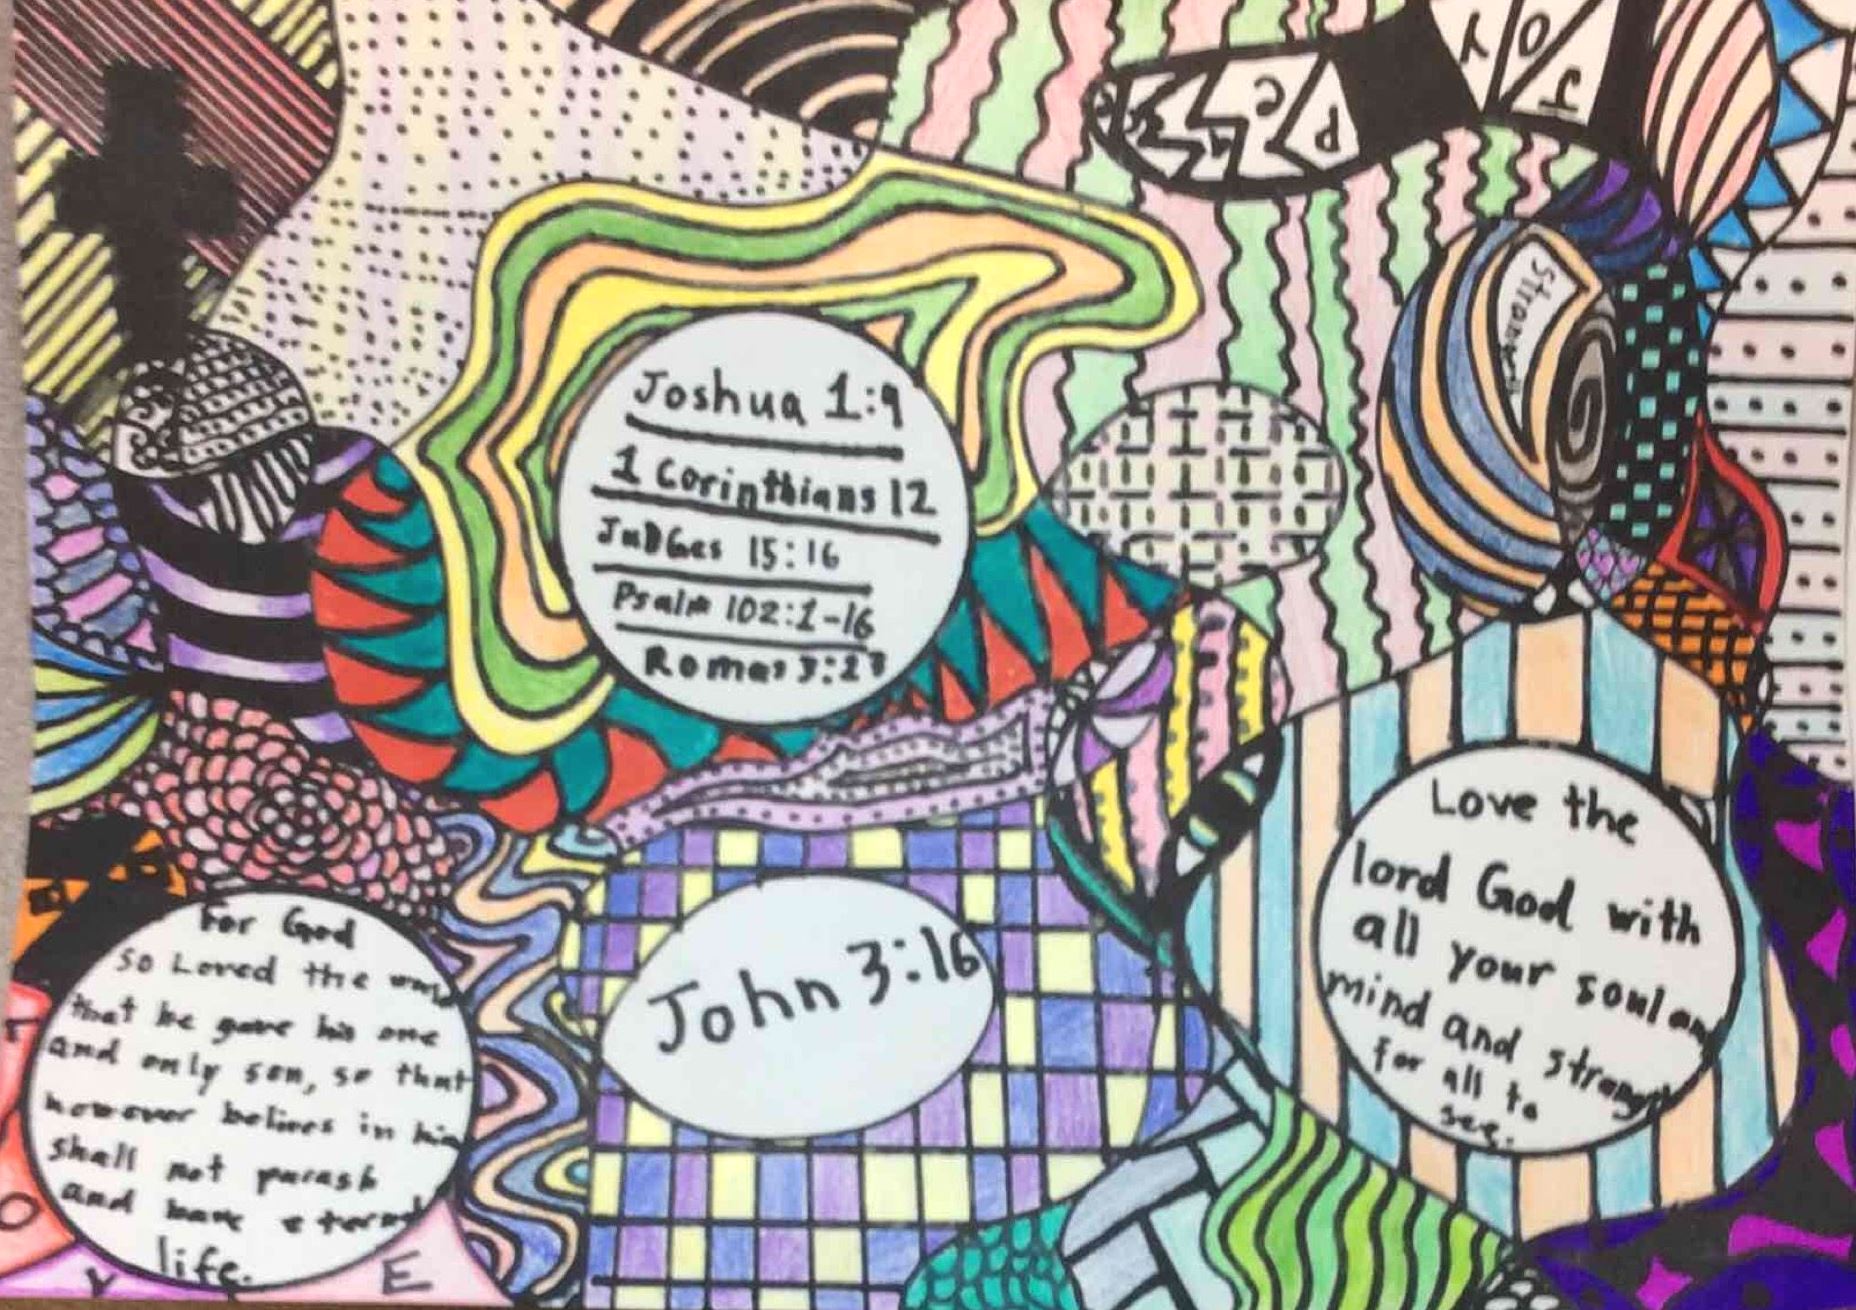 JOY
PEace
Strength
Joshua 1:9
1 Corinthians 12
JuDGes 15:16
Psalm 102:1-16
Romas 3:23
Love the
lord God with
all your soul an
mind and strength
for all to
see.
John 3:16
For God
so Loved the world
that he gave his one
and only son, so that
howover belives in him
shall not parash
and have eternal
life.
L
O
V
E